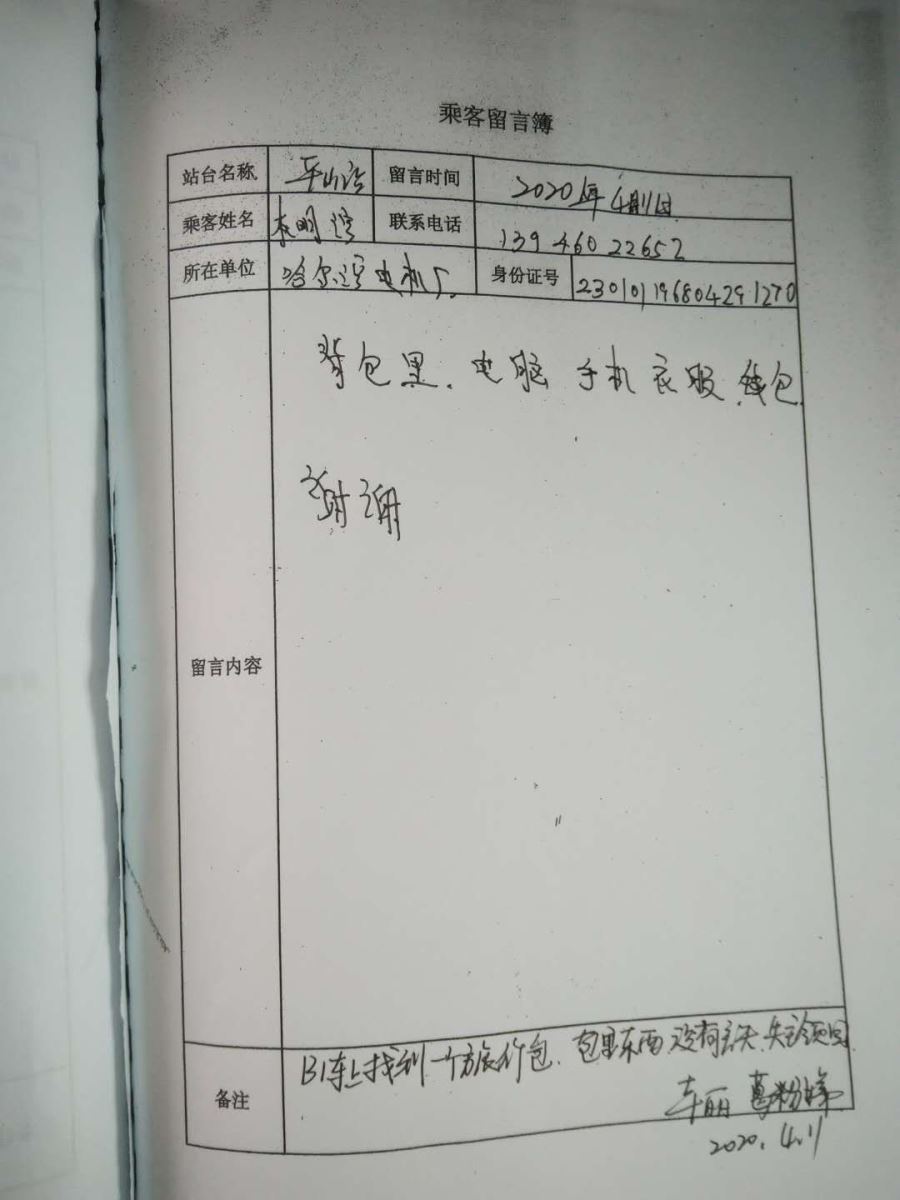 乘客留言簿
站台名称 平山站 留言时间 2020年4月11日
乘客姓名 明 联系电话 139 460 22652
所在单位 哈尔滨电机厂. 身份证号 230101196804291270
背包里、电脑 手机 衣服 钱包.
谢谢
留言内容
备注 B1车上找到一个旅行包、包里东西没有丢失、失主领回
丽 葛粉
2020.4.11